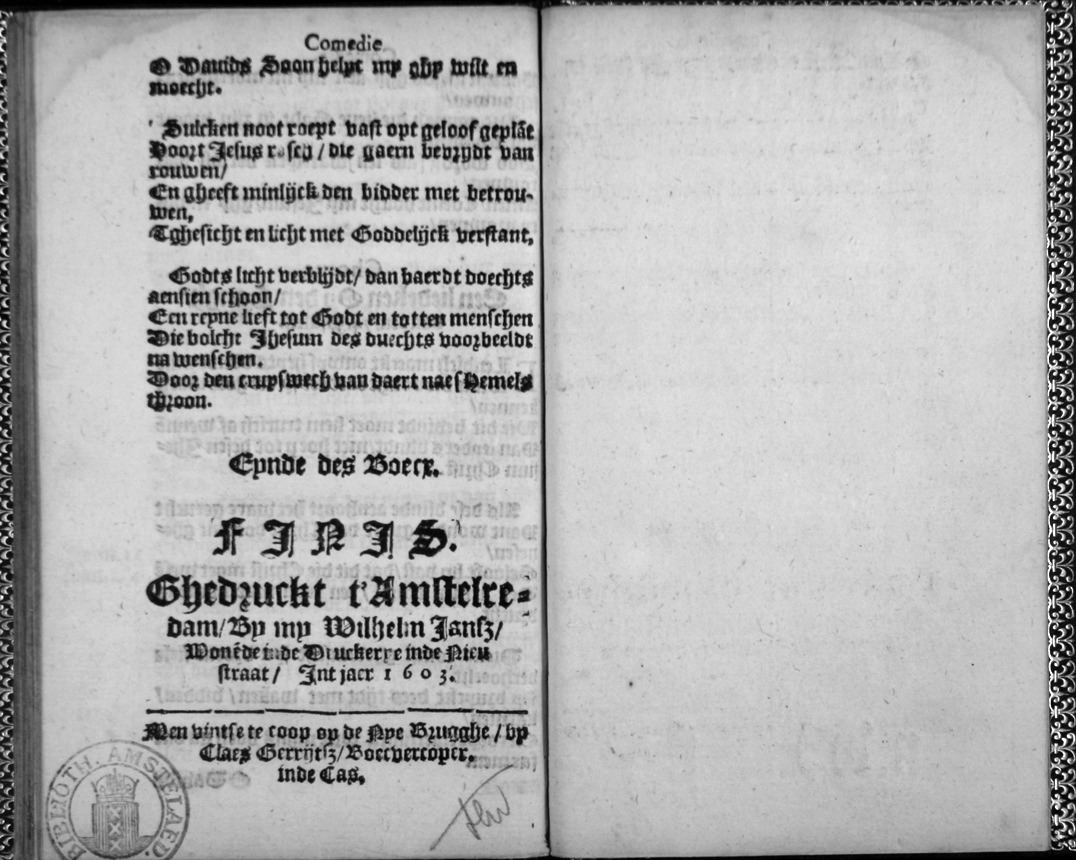 Comedie
O Davids Soon helpt my ghy wilt en
moecht.
Sulcken noot roept vast opt geloof geplãt
Voort Jesus rasch / die gaern bevrydt van
rouwen/
En gheeft minlijck den bidder met betrou-
wen,
Tghesicht en licht met Goddelijck verstant,
Godts licht verblijdt / dan baerdt doechts
aensien schoon/
Een reyne lieft tot Godt en totten menschen
Die volcht Jhesum des duechts voorbeeldt
na wenschen.
Door den cruyswech van daert naes Hemels
throon.
Eynde des Boecx.
FINIS.
Ghedruckt t'Amstelre-
dam/ By my Wilhelm Jansz/
Wonẽde inde Druckerye inde Nieu
straat / Int jaer 1603.
Men vintse te coop op de Nye Brugghe / by
Claes Gerrijtsz/ Boecvercoper.
inde Cas,
BIBLIOTH. AMSTELAED.